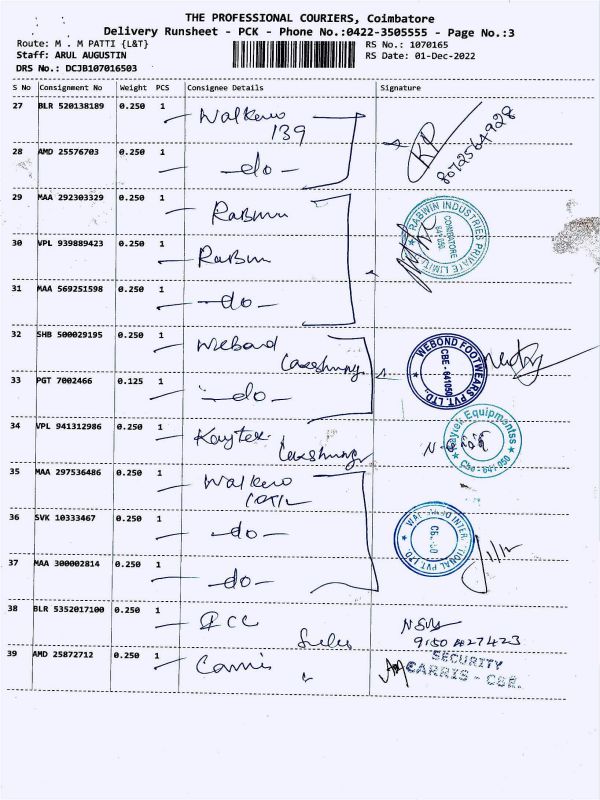 THE PROFESSIONAL COURIERS, Coimbatore
Delivery Runsheet - PCK - Phone No.:0422-3505555 - Page No.:3
Route: M . M PATTI {L&T}
RS No.: 1070165
Staff: ARUL AUGUSTIN
RS Date: 01-Dec-2022
DRS No.: DCJB107016503
S No Consignment No Weight PCS Consignee Details Signature
27 BLR 520138189 0.250 1 Walkeroo
139
KP
8072564928
28 AMD 25576703 0.250 1 -do-
29 MAA 292303329 0.250 1 Rabwin
RABWIN INDUSTRIES PRIVATE LIMITED
COIMBATORE
641 050
30 VPL 939889423 0.250 1 Rabwin
31 MAA 569251598 0.250 1 -do-
32 SHB 500029195 0.250 1 Webond
WEBOND FOOTWEARS PVT. LTD.
CBE - 641050
33 PGT 7002466 0.125 1 -do-
34 VPL 941312986 0.250 1 Kaytek
Kaytek Equipmentss
Cbe-641 050
35 MAA 297536486 0.250 1 Walkeroo
36 SVK 10333467 0.250 1 -do-
37 MAA 300002814 0.250 1 -do-
38 BLR 5352017100 0.250 1
9150427423
39 AMD 25872712 0.250 1 Carris
SECURITY
CARRIS - CBE.